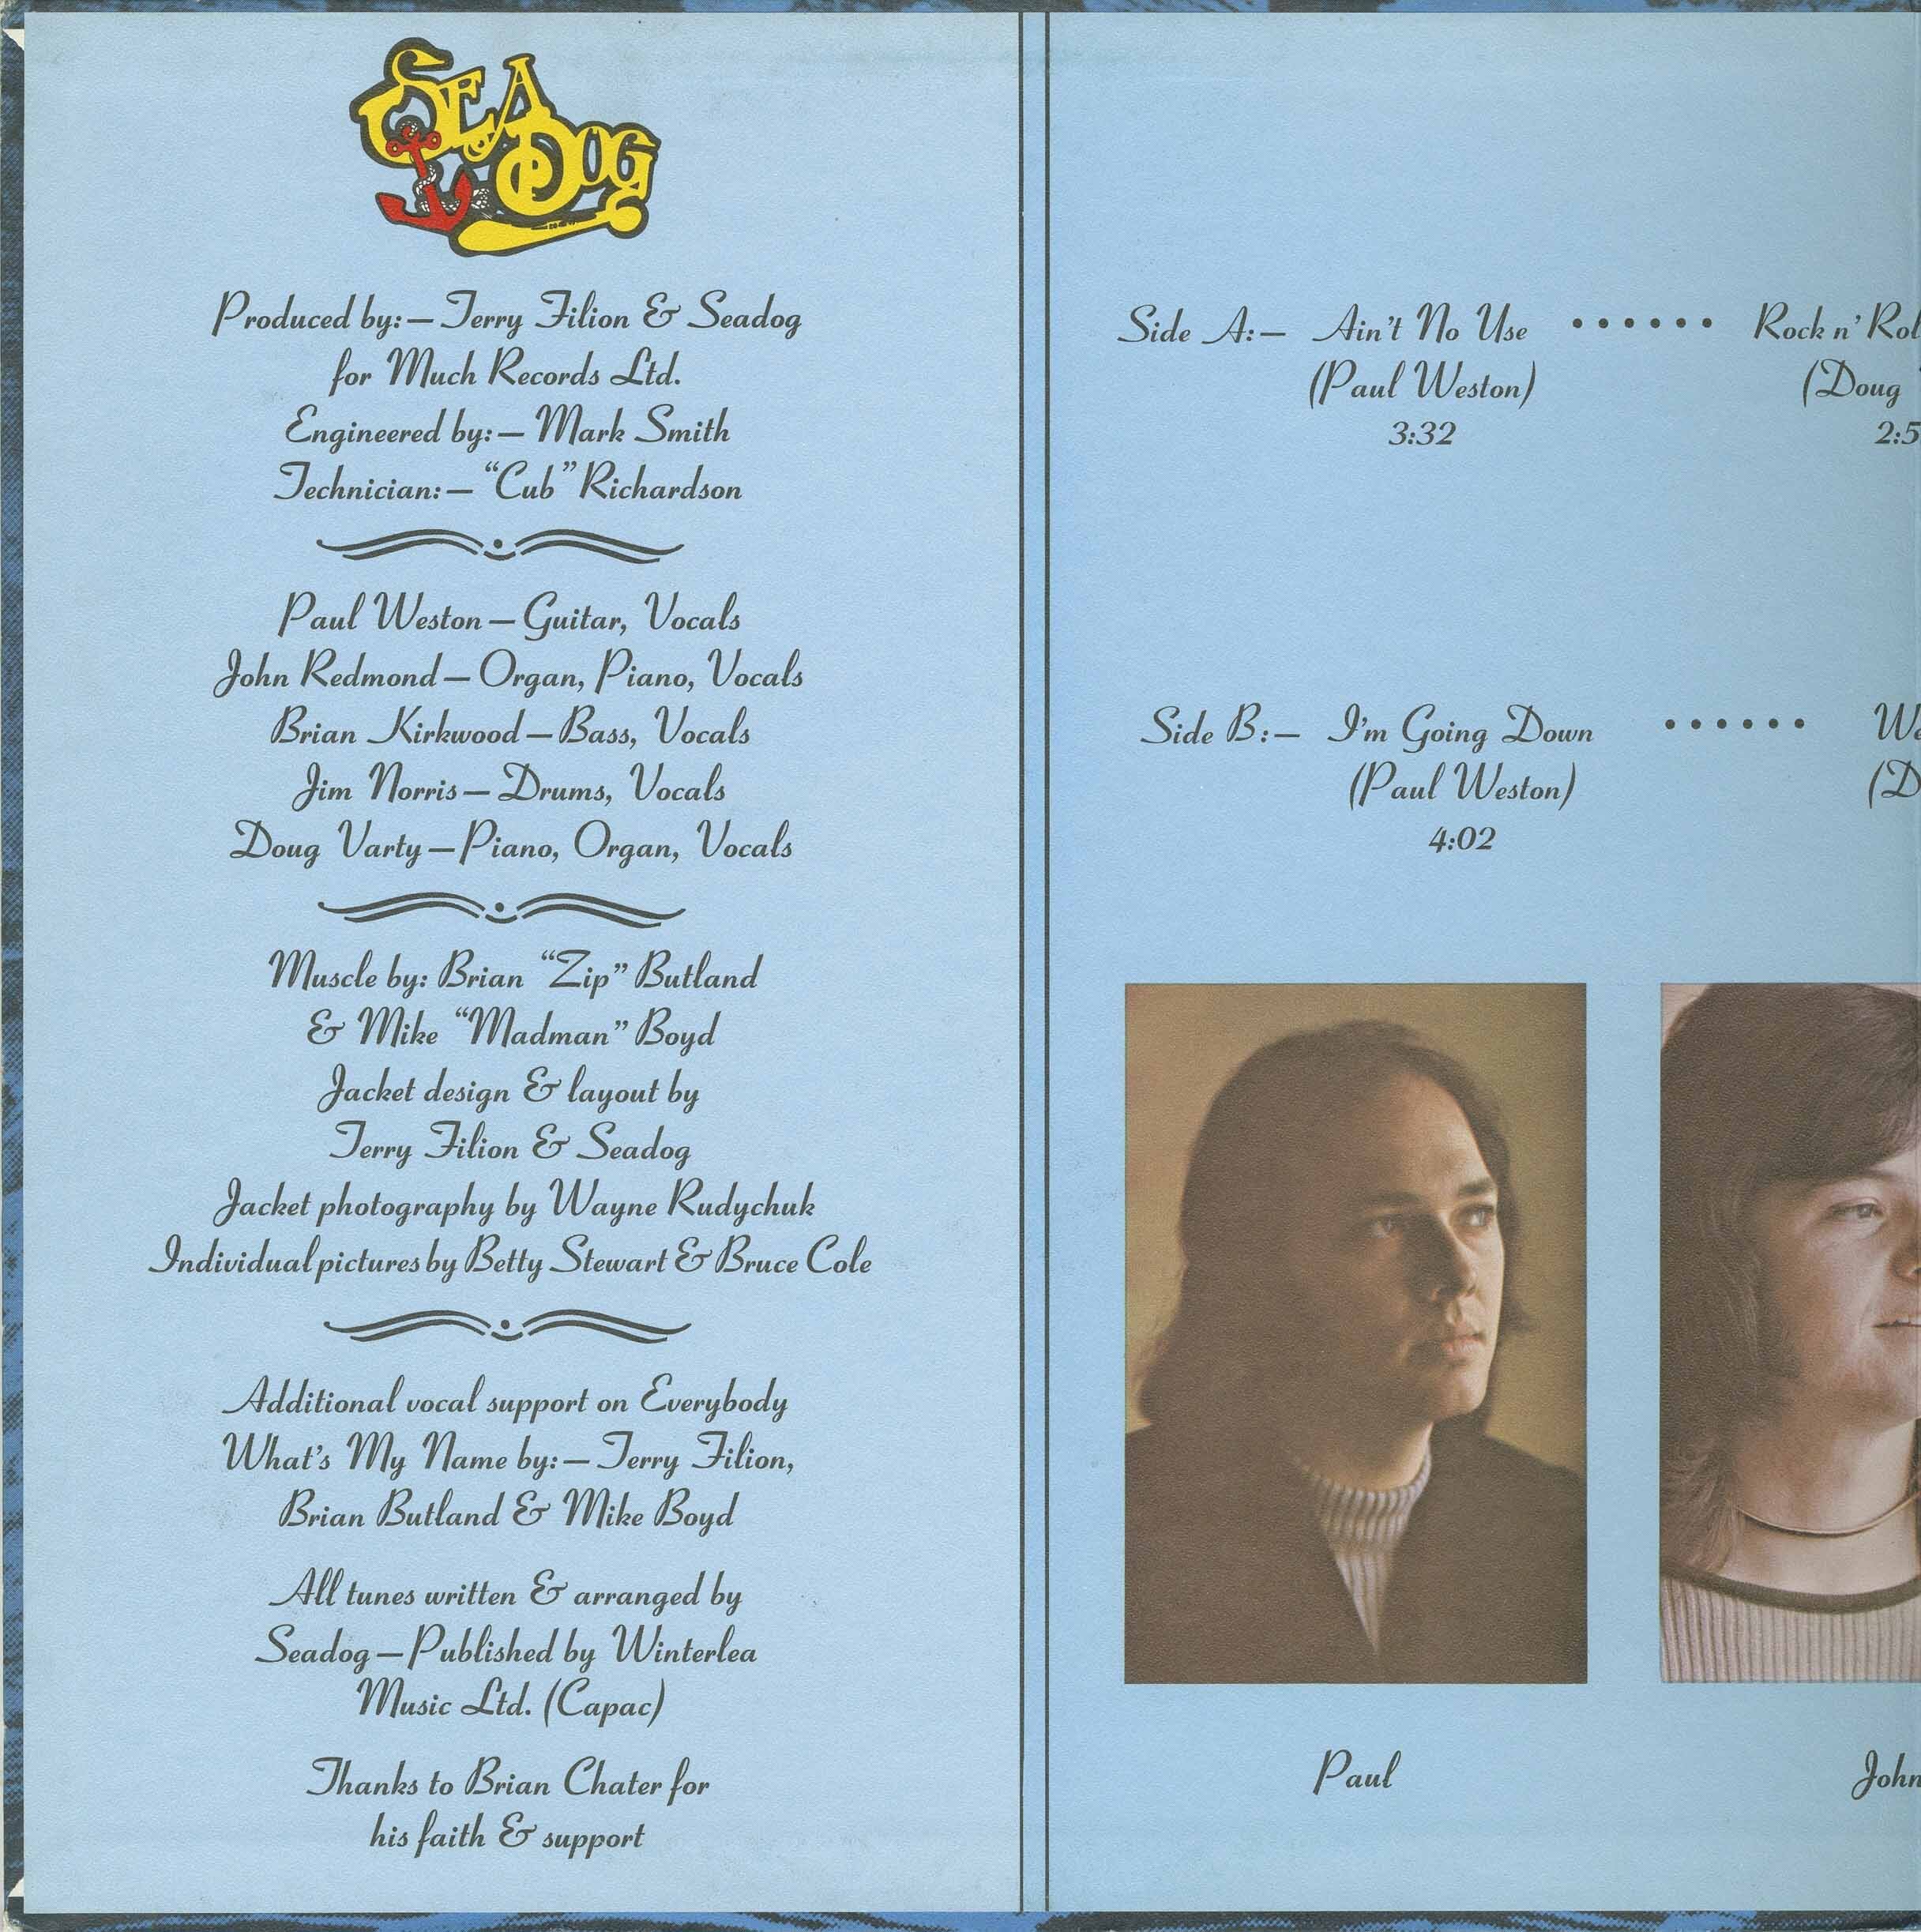 SEA DOG
Produced by:—Terry Filion & Seadog
for Much Records Ltd.
Engineered by:—Mark Smith
Technician:—“Cub” Richardson
Paul Weston—Guitar, Vocals
John Redmond—Organ, Piano, Vocals
Brian Kirkwood—Bass, Vocals
Jim Norris—Drums, Vocals
Doug Varty—Piano, Organ, Vocals
Muscle by: Brian “Zip” Butland
& Mike “Madman” Boyd
Jacket design & layout by
Terry Filion & Seadog
Jacket photography by Wayne Rudychuk
Individual pictures by Betty Stewart & Bruce Cole
Additional vocal support on Everybody
What's My Name by:—Terry Filion,
Brian Butland & Mike Boyd
All tunes written & arranged by
Seadog—Published by Winterlea
Music Ltd. (Capac)
Thanks to Brian Chater for
his faith & support
Side A:— Ain't No Use • • • • • • Rock n' Rol
(Paul Weston) (Doug
3:32 2:5
Side B:— I'm Going Down • • • • • • We
(Paul Weston) (D
4:02
Paul John